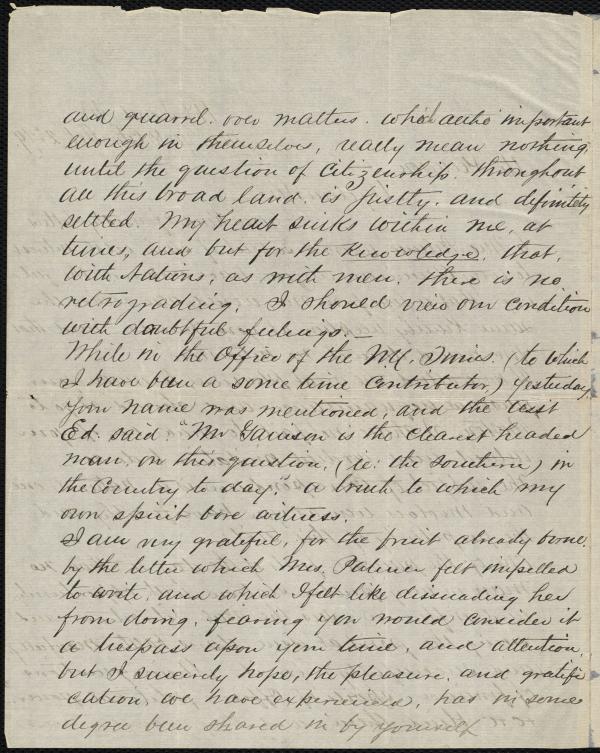 and quarrel over matters. which altho' important
enough in themselves, really mean nothing,
until the question of Citizenship. throughout
all this broad land. is firstly. and definitely
settled. My heart sinks within me, at
times, and but for the Knowledge, that,
with Nations, as with men. there is no
retrograding. I should view our condition
with doubtful feelings. —
While in the Office of the N.Y. Times. (to which
I have been a some time Contributor,) yesterday,
your name was mentioned, and the Asst
Ed. said. "Mr Garrison is the clearest headed
man on this question, (ie: the Southern) in
the Country to day." a truth to which my
own spirit bore witness.
I am very grateful, for the fruit already borne.
by the letter which Mrs. Palmer felt impelled
to write, and which I felt like dissuading her
from doing, fearing you would consider it
a trespass upon your time, and attention.
but I sincerely hope, the pleasure, and gratifi
cation, we have experienced, has in some
degree been shared in by yourself